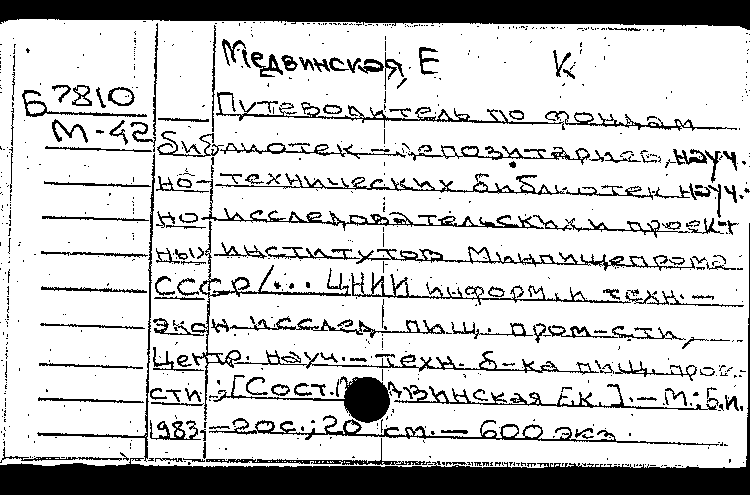 Медвинская, Е К
Б 7810
М-42
Путеводитель по фондам
библиотек-депозитариев, науч.
но-технических библиотек науч.
но-исследовательских и проект
ных институтов Минпищепрома
СССР/... ЦНИИ информ. и техн.-
экон. исслед. пищ. пром-сти,
Центр. науч.-техн. б-ка пищ. пром-
сти; [Сост. Медвинская Е.К.]. — М.: Б.И.
1983. — 20с.; 20 см. — 600 экз.